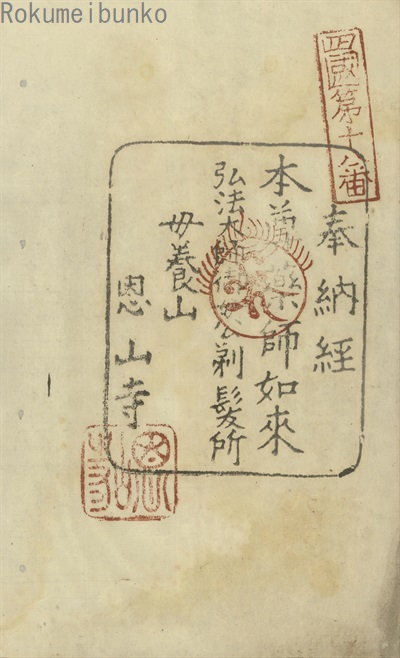 Rokumeibunko
四國第十八番
奉納経
本尊薬師如來
弘法大師御母公剃髮所
母養山
恩山寺